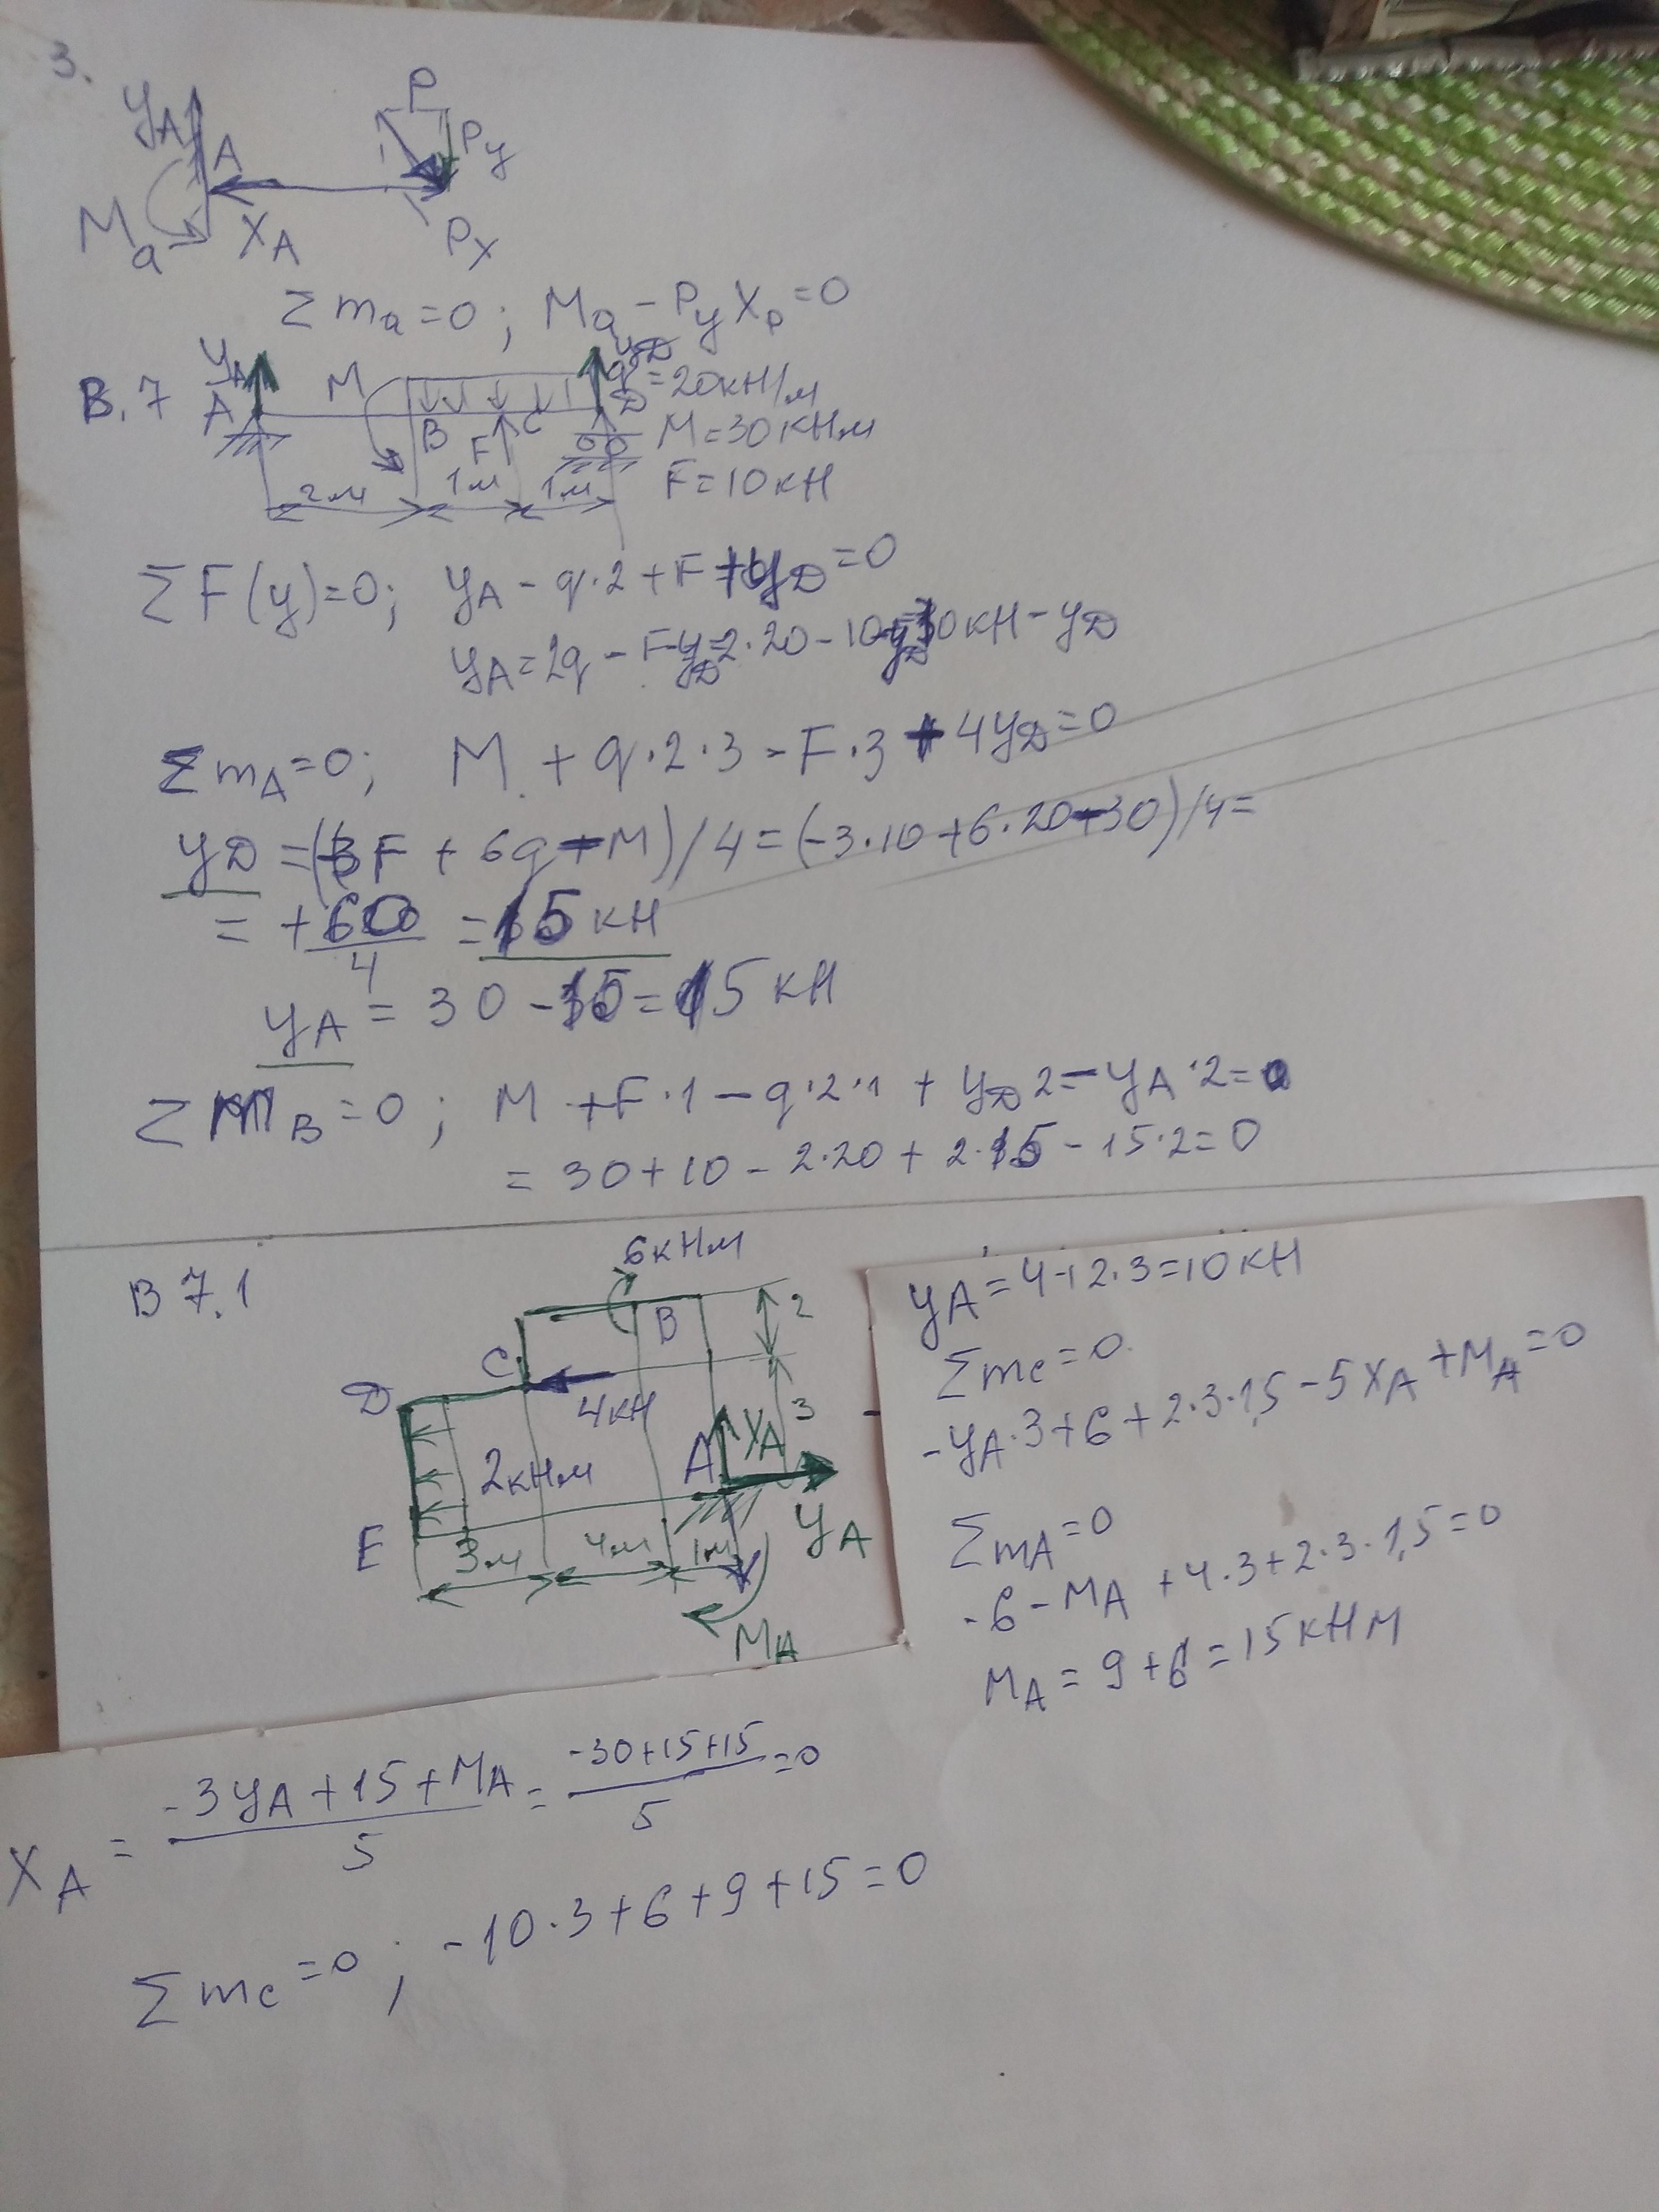 3.
P
yA
A
Py
Ma
XA
Px
Σ ma = 0 ; Ma - Py Xp = 0
B.7
yA
A
M
B
F
C
D
yD
q = 20 кН/м
M = 30 кНм
F = 10 кН
2м
1м
1м
ΣF(y)=0; yA - q·2 + F + yD = 0
yA = 2q - F - yD = 2·20 - 10 - yD = 30 кН - yD
ΣmA=0; M + q·2·3 - F·3 + 4yD = 0
yD = (-3F + 6q - M)/4 = (-3·10 + 6·20 - 30)/4 =
= +60/4 = 15 кН
yA = 30 - 15 = 15 кН
ΣmB = 0; M + F·1 - q·2·1 + yD 2 - yA·2 = 0
= 30 + 10 - 2·20 + 2·15 - 15·2 = 0
B 7.1
6кНм
B
2
C
D
4кН
XA
3
A
2кНм
E
yA
3м
4м
1м
MA
yA = 4+2·3=10 кН
Σmc = 0
-yA·3+6+2·3·1,5-5XA+MA=0
ΣmA=0
-6-MA+4·3+2·3·1,5=0
MA = 9+6 = 15 кНм
XA = (-3yA+15+MA)/5 = (-30+15+15)/5 = 0
Σmc = 0 ; -10·3+6+9+15=0